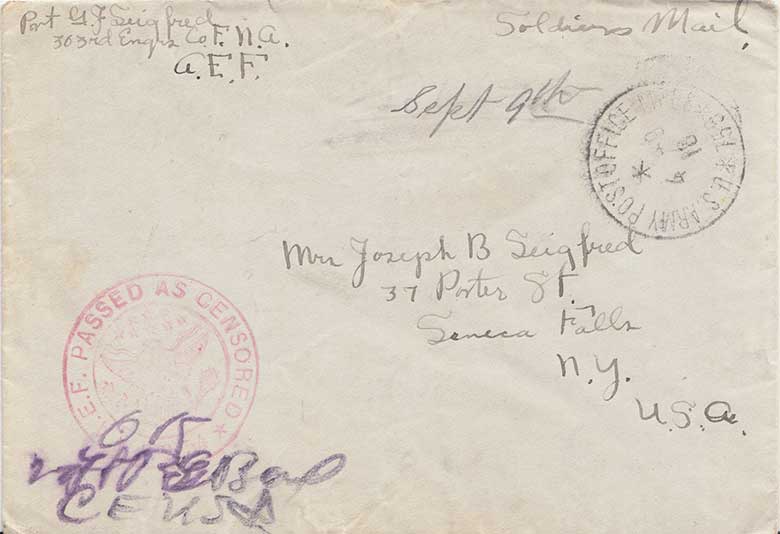 G. J. Seigfred
303rd Engrs Co. F. N.A.
A.E.F.
Soldiers Mail.
Sept 9th
POST OFFICE
U.S. ARMY
Mrs Joseph B Seigfred
37 Porter St.
Seneca Falls
N.Y.
U.S.A.
E.F. PASSED AS CENSORED
OK
C E USA